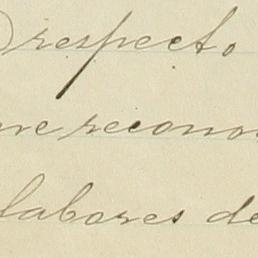 respecto
me recono
labores de